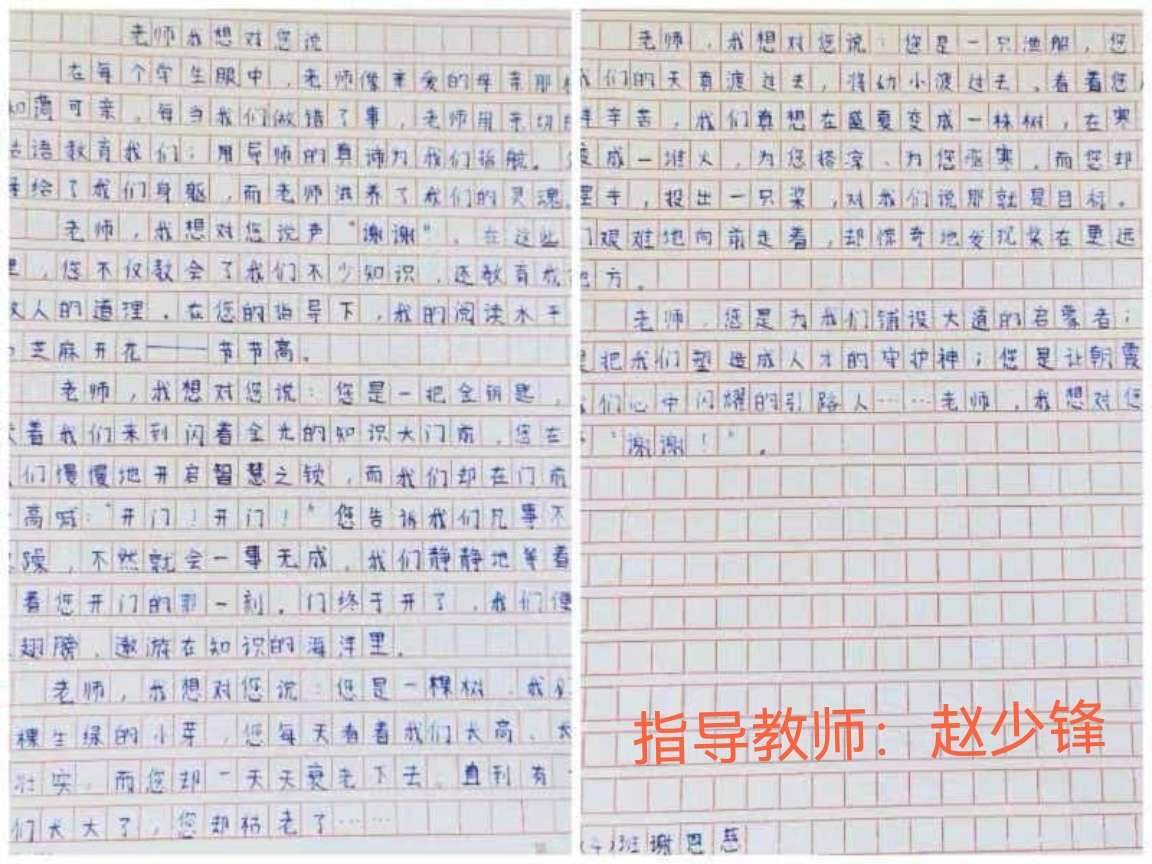 老师我想对您说
在每个学生眼中,老师像亲爱的母亲那
蔼可亲,每当我们做错了事,老师用亲切
话语教育我们;用导师的真谛为我们指航。
给了我们身躯,而老师滋养了我们的灵魂
老师,我想对您说声“谢谢”,在这些
里,您不仅教会了我们不少知识,还教育
人的道理。在您的指导下,我的阅读水平
芝麻开花——节节高。
老师,我想对您说:您是一把金钥匙,
着我们来到闪着金光的知识大门前,您在
们慢慢地开启智慧之锁,而我们却在门前
高喊:“开门!开门!”您告诉我们凡事不
躁,不然就会一事无成,我们静静地等着
看您开门的那一刻。门终于开了,我们
翅膀,遨游在知识的海洋里。
老师,我想对您说:您是一棵树,我
棵生绿的小芽,您每天看着我们长高、
壮实,而您却一天天衰老下去,直到有
们长大了,您却枯老了……
老师,我想对您说:您是一只渔船,您
我们的天真渡过去,将幼小渡过去。看着您
辛苦,我们真想在盛夏变成一株树,在寒
变成一堆火,为您搭凉,为您驱寒,而您却
手,投出一只桨,对我们说那就是目标。
们艰难地向前走着,却惊奇地发现桨在更远
地方。
老师,您是为我们铺设大道的启蒙者;
是把我们塑造成人才的守护神;您是让朝霞
我们心中闪耀的引路人……老师,我想对您
“谢谢!”。
指导教师:赵少锋
(4)班谢恩慈